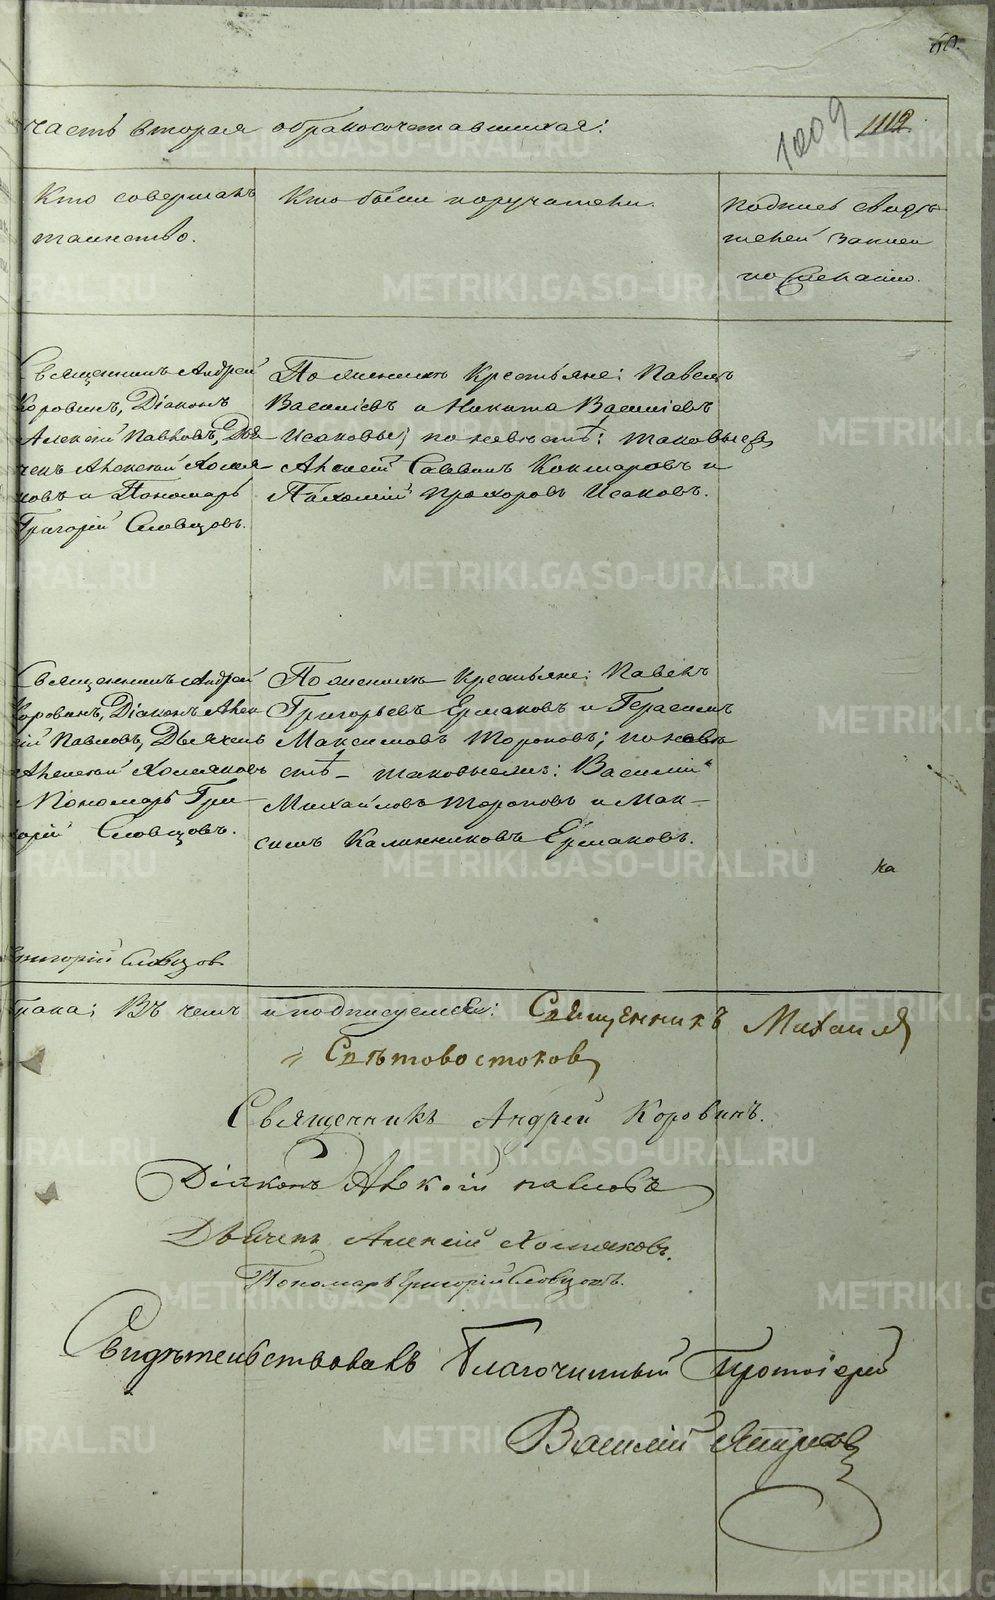 часть вторая о бракосочетавшихся:
1009 1112
Кто совершалъ
таинство.
Кто были поручители.
Подпись свидѣ-
телей записи
по желанію.
Священникъ Андрей
Коровинъ, Діаконъ
Алексій Павловъ, Дья
чекъ Алексѣй Холмя
ковъ и Пономарь
Григорій Словцовъ.
По женихѣ Крестьяне: Павелъ
Василіевъ и Никита Василіевъ
Исаковы; по невѣстѣ: таковые
Алексѣй Саввинъ Кокшаровъ и
Пахомій Прохоровъ Исаковъ.
Священникъ Андрей
Коровинъ, Діаконъ Алек
сій Павловъ, Дьячекъ
Алексѣй Холмяковъ
и Пономарь Гри
горій Словцовъ.
По женихѣ Крестьяне: Павелъ
Григорьевъ Ермаковъ и Герасимъ
Максимовъ Тороповъ; по невѣ
стѣ - таковые: Василій
Михайловъ Тороповъ и Мак-
симъ Калинниковъ Ермаковъ.
ка
Григорій Словцов
брака; Въ чемъ и подписуемся: Священникъ Михаилъ
Свѣтовостоковъ
Священникъ Андрей Коровинъ.
Діаконъ Алексій Павловъ
Дьячекъ Алексій Холмяковъ.
Пономарь Григорій Словцовъ.
Свидѣтельствовалъ Благочинный Протоіерей
Василій
METRIKI.GASO-URAL.RU